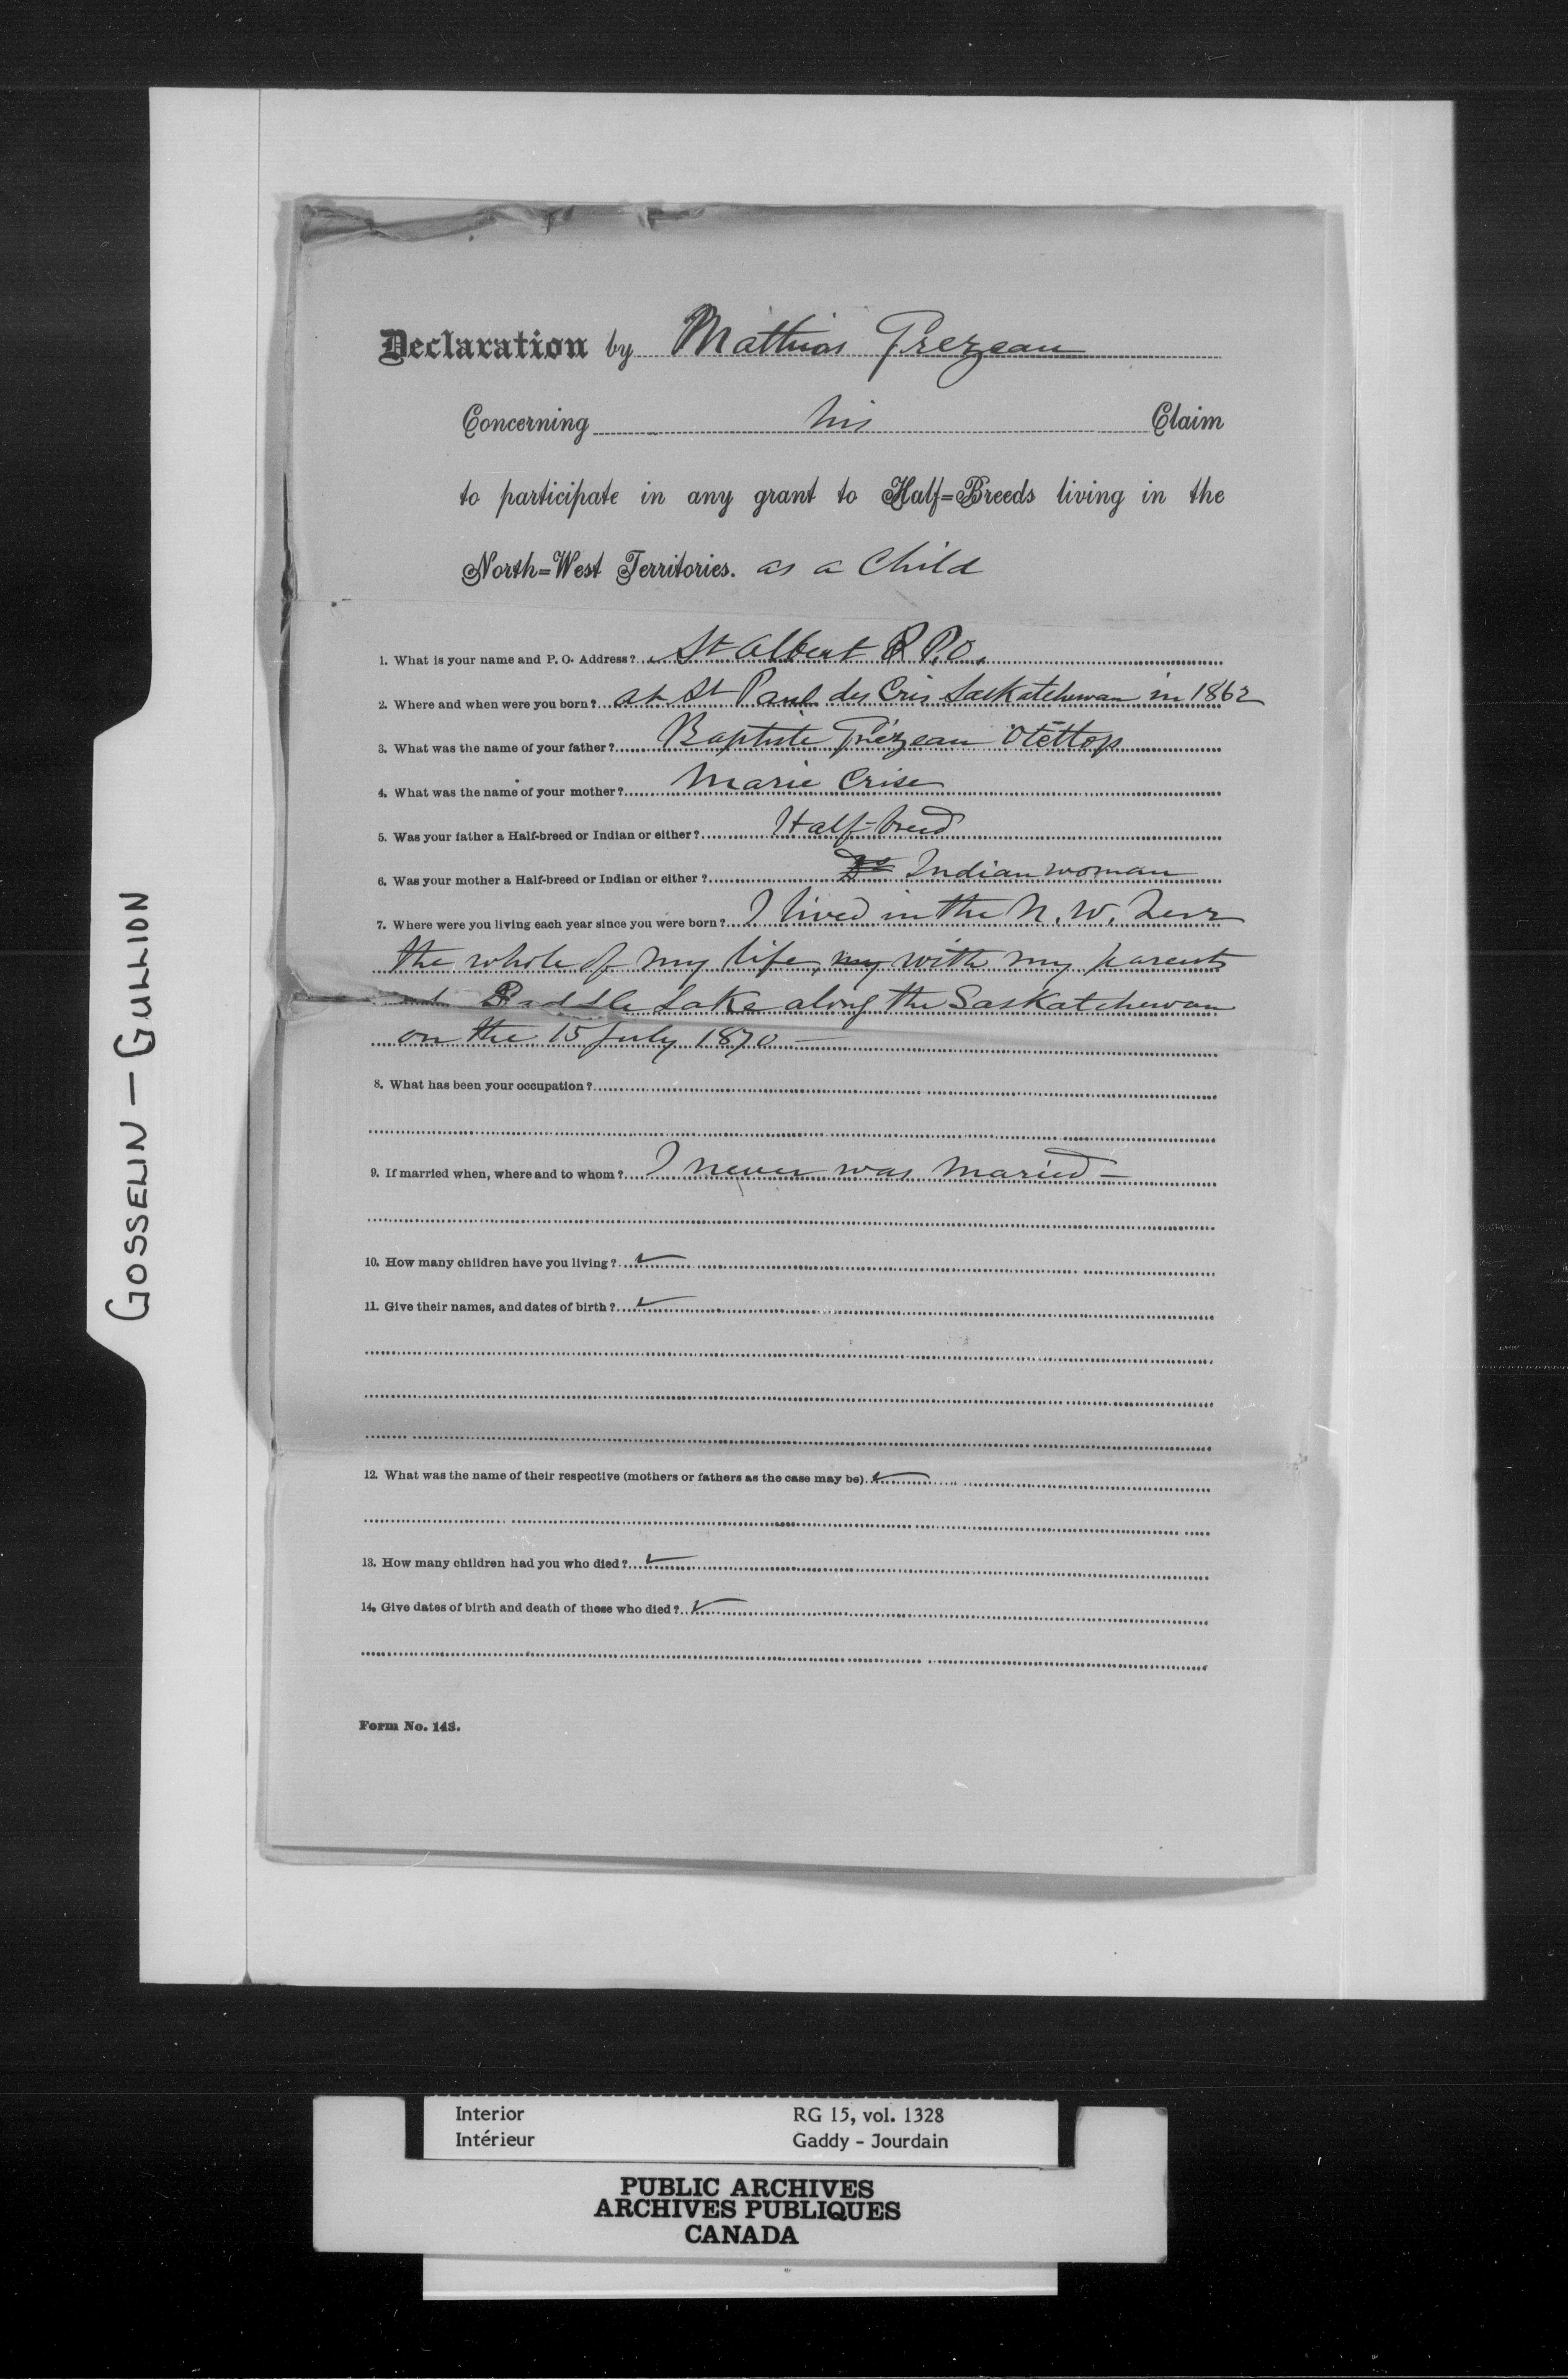 GOSSELIN — GULLION
Declaration by Mathias Grezeau
Concerning his Claim
to participate in any grant to Half=Breeds living in the
North=West Territories. as a Child
1. What is your name and P. O. Address? St Albert P.O.
2. Where and when were you born? at St Paul des Cris Saskatchewan in 1862
3. What was the name of your father? Baptiste Grézeau Otéttop
4. What was the name of your mother? Marie Crise
5. Was your father a Half-breed or Indian or either? Half-breed
6. Was your mother a Half-breed or Indian or either? Do Indian woman
7. Where were you living each year since you were born? I lived in the N. W. Terr
the whole of my life, my with my parents
at Saddle Lake along the Saskatchewan
on the 15 July 1870 —
8. What has been your occupation?
9. If married when, where and to whom? I never was maried —
10. How many children have you living?
11. Give their names, and dates of birth?
12. What was the name of their respective (mothers or fathers as the case may be)
13. How many children had you who died?
14. Give dates of birth and death of those who died?
Form No. 143.
Interior RG 15, vol. 1328
Intérieur Gaddy - Jourdain
PUBLIC ARCHIVES
ARCHIVES PUBLIQUES
CANADA